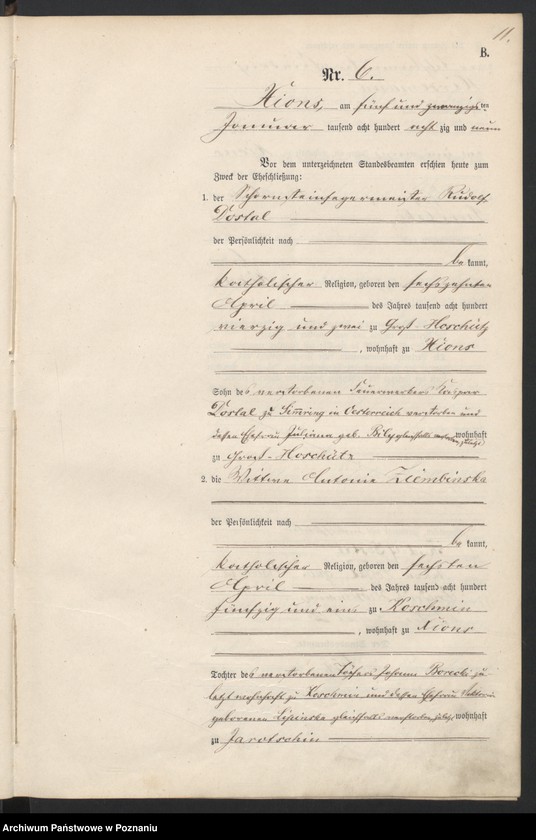 11.
B.
Nr. 6.
Xions, am fünf und zwanzigsten
Januar tausend acht hundert acht zig und neun
Vor dem unterzeichneten Standesbeamten erschien heute zum
Zweck der Eheschließung:
1. der Schornsteinfegermeister Rudolf
Dostal
der Persönlichkeit nach
be kannt,
katholischer Religion, geboren den sechszehnten
April des Jahres tausend acht hundert
vierzig und zwei zu Groß-Hoschütz
, wohnhaft zu Xions
Sohn des verstorbenen Kaspar
Dostal zu in Oesterreich verstorben und
dessen Ehefrau Juliana geb. wohnhaft
zu Groß-Hoschütz
2. die Wittwe Antonie Ziembinska
der Persönlichkeit nach
be kannt,
katholischer Religion, geboren den sechsten
April des Jahres tausend acht hundert
fünfzig und eins zu Koschmin
, wohnhaft zu Xions
Tochter des verstorbenen Töpfers Johann Borecki zu
letzt wohnhaft zu Koschmin und dessen Ehefrau
geborenen Lipinska gleichfalls verstorben zuletzt wohnhaft
zu Jarotschin
Archiwum Państwowe w Poznaniu